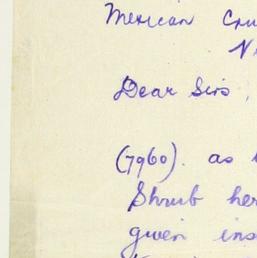 Mexican
Dear Sirs,
(7960). as
Shrub her
given ins